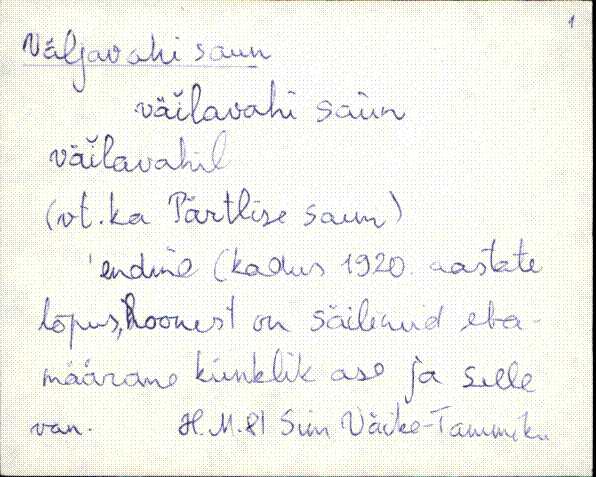 1
Väljavahi saun
väĭlavahi saun
väĭlavahil
(vt. ka Pärtlise saun)
'endine (kadus 1920. aastate
lõpus, hoonest on säilinud eba-
määrane künklik ase ja selle
van. H.M.81 Sim Väike-Tammiku